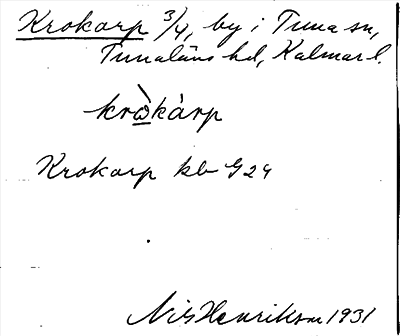 Krokarp 3/4, by i Tuna sn,
Tunaläns hd, Kalmar l.
krὼkàrp
Krokarp kb G 24
Nils Henrikson 1931